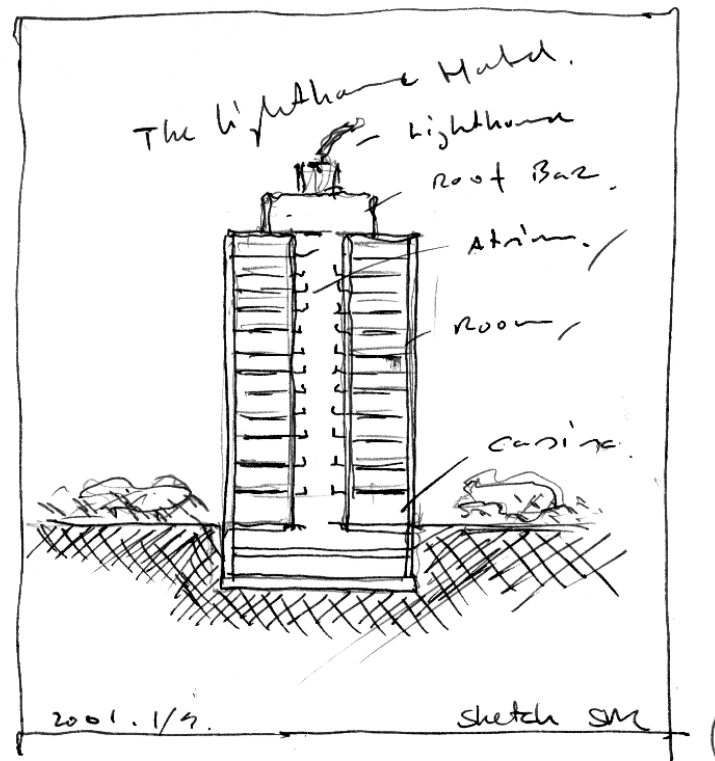 The Lighthouse Hotel.
Lighthouse
Roof Bar.
Atrium.
Room
Casino.
2001. 1/9.
Sketch SM